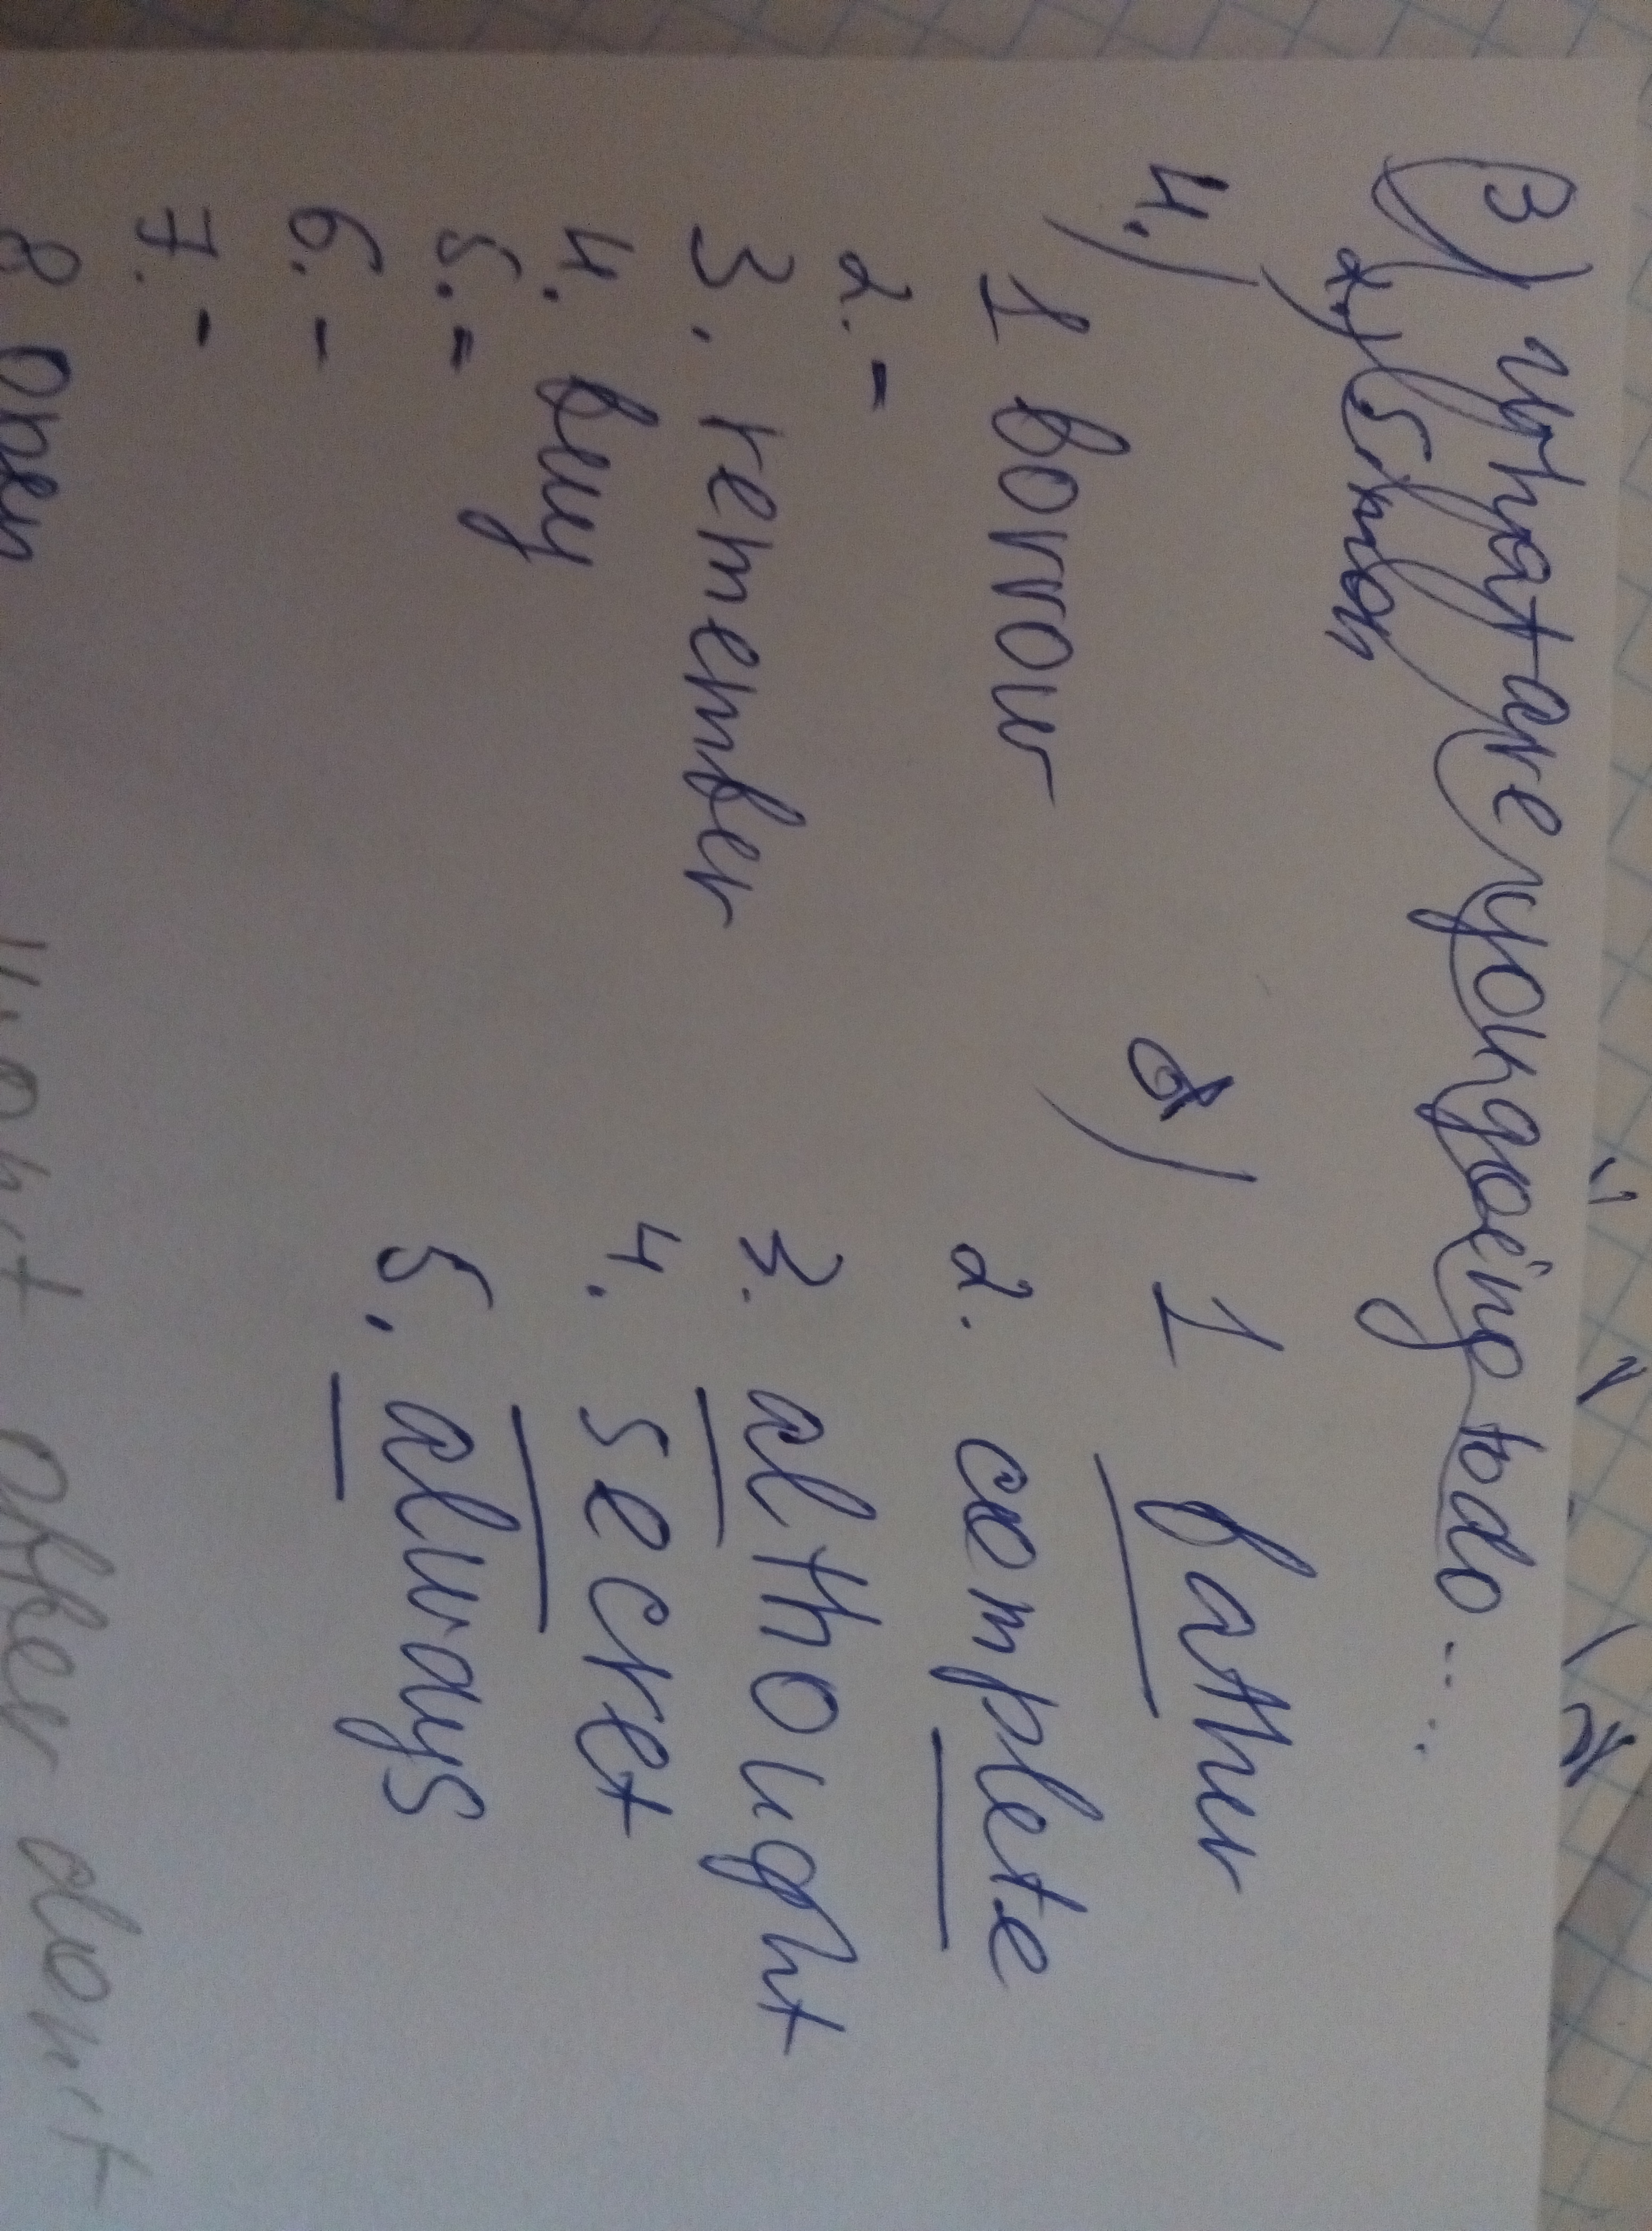 B) what are you going to do...
2.) Simon
4.)
1 borrow
2. -
3. remember
4. buy
5. -
6. -
7. -
8 open
1 father
2. complete
3. althought
4. secret
5. always
after don't